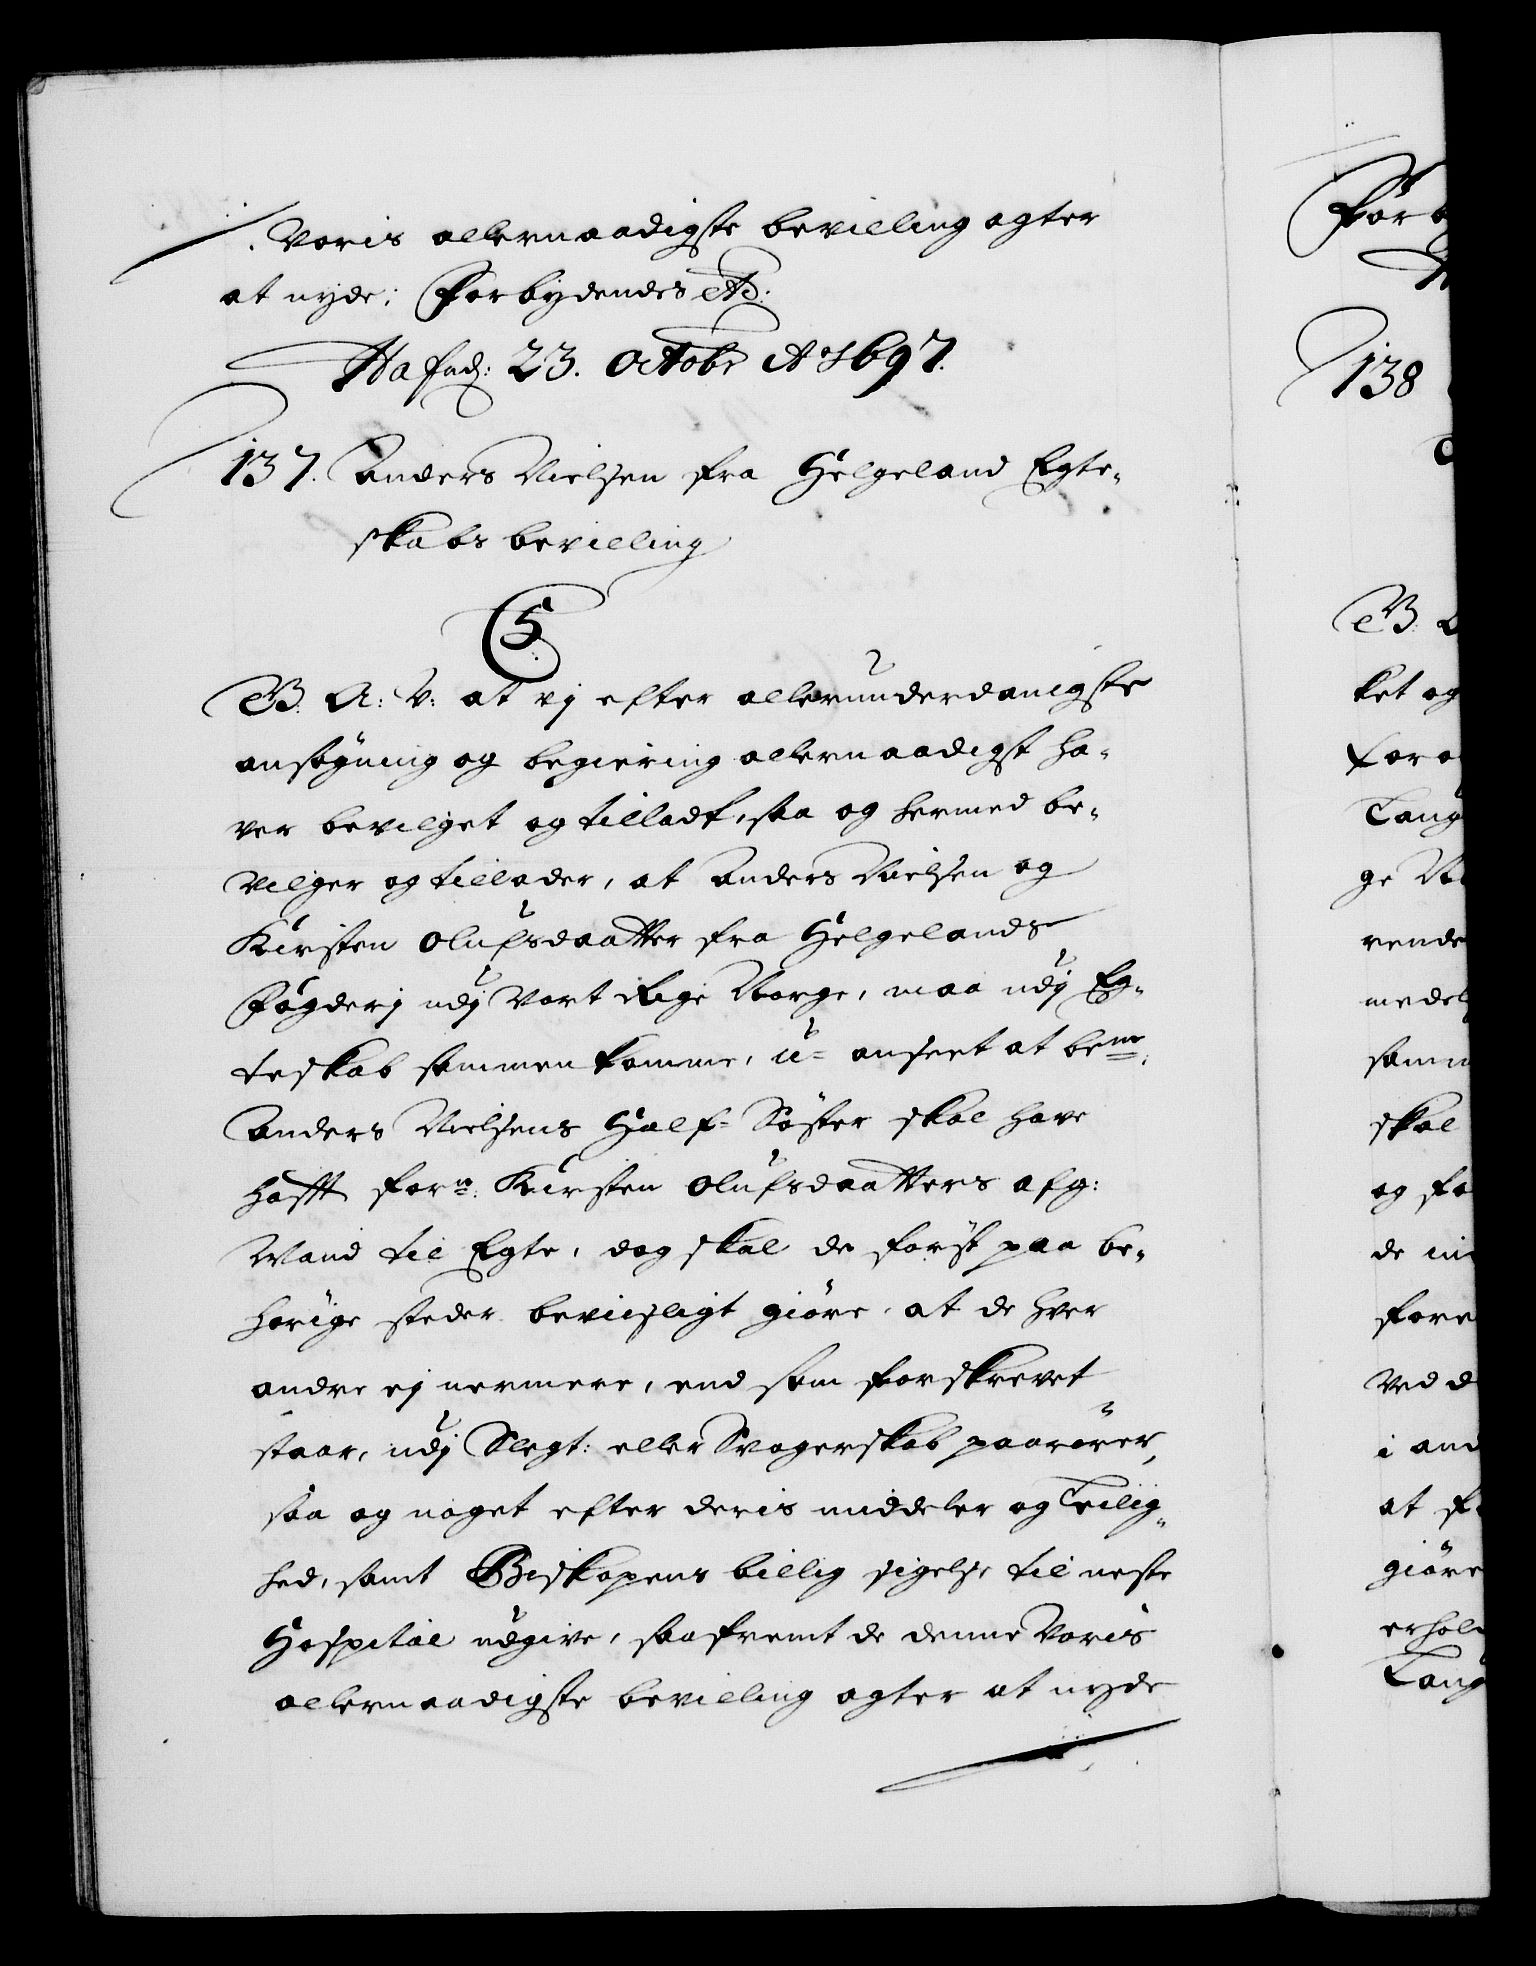 Voris allernaadigste bevilling agter
at nyde; Forbydendes etc:
Hafnd: 23. Octobr Ao 1697.
137. Anders Nielsen fra Helgeland Egte-
skabs bevilling
C5
G. A: V: at vj efter allerunderdanigste
ansøgning og begiering allernaadigst ha-
ver bevilget og tilladt, saa og hermed be-
vilger og tillader, at Anders Nielsen og
Kirsten Olufsdaatter fra Helgelands
Fogderj udj Vort Rige Norge, maa udj Eg-
teskab sammen komme, u= anseet at bemte.
Anders Nielsens Half= Søster skal have
hafft forn: Kirsten Olufsdaatters afg:
Mand til Egte, dog skal de først paa be-
hørige steder bevisligt giøre, at de hver
andre ej nermere, end som forskrevet
staar, udj Slegt: eller Svogerskab paarører,
saa og noget efter deris middeler og Leilig-
hed, samt Biskopens billig sigelse til neste
Hospital udgive, saafremt de denne Voris
allernaadigste bevilling agter at nyde
138
ket og
ge
skal
og
de
ved d
i and
at
giøre